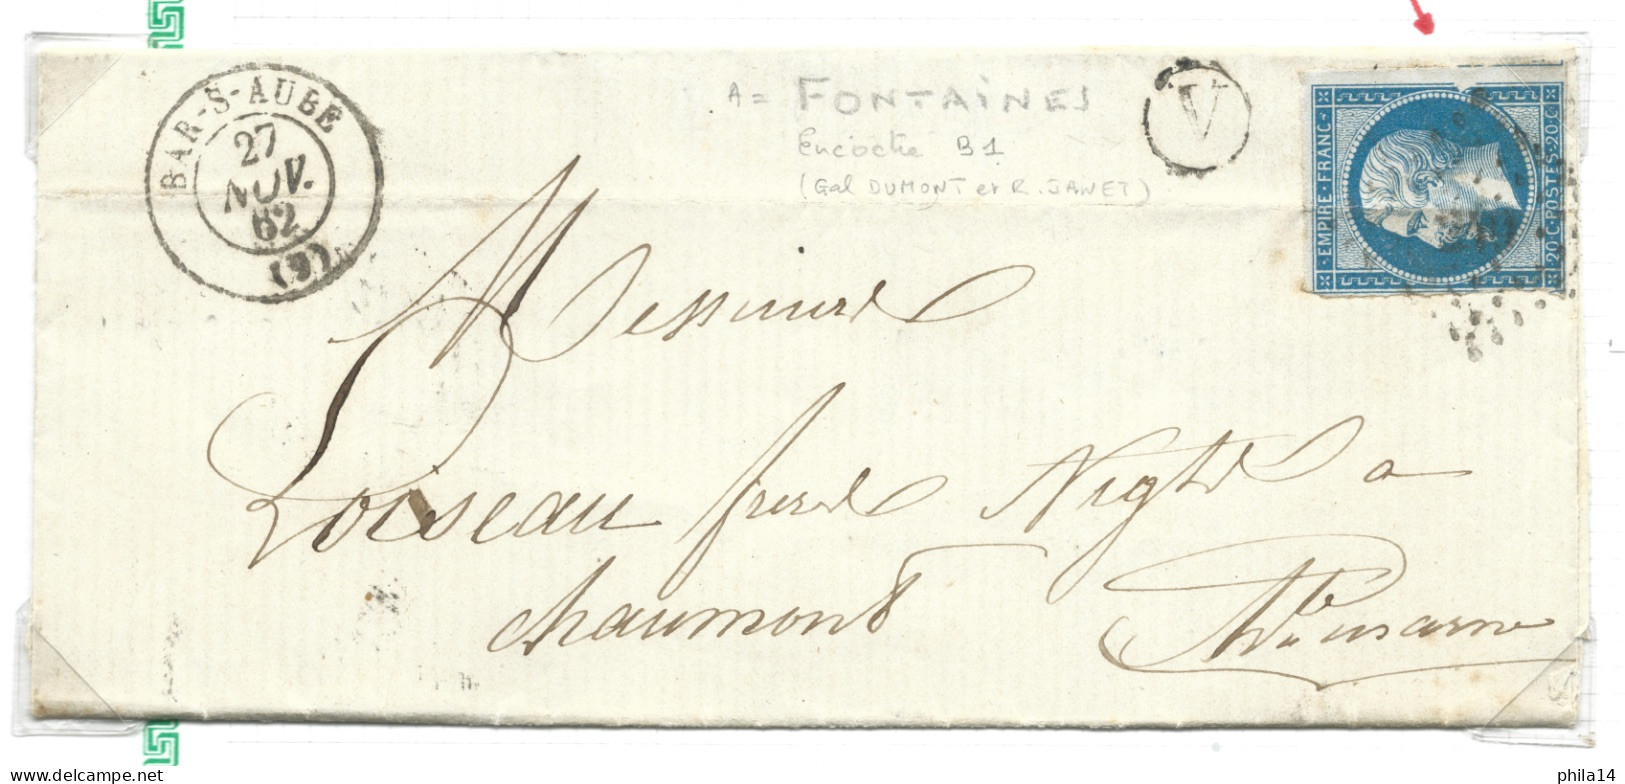 BAR-S-AUBE
27
NOV.
62
(9)
A = FONTAINES
Encoche B1
(Gal DUMONT et R. JAMET)
V
EMPIRE·FRANC·
20·C·POSTES·20·C·
Messieurs
Loiseau frères Nigts a
chaumont
Hte Marne
phila14
www.delcampe.net